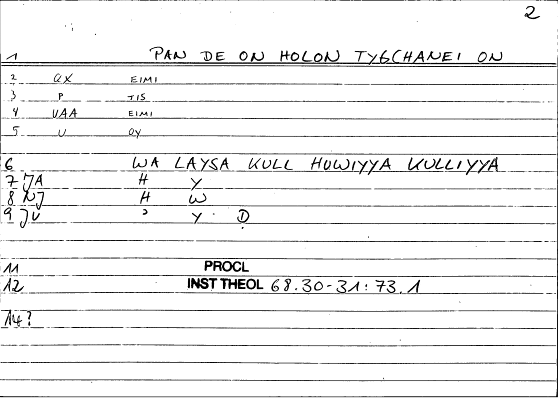 2
1 PAN DE ON HOLON TYGCHANEI ON
2 QX EIMI
3 P TIS
4 UAA EIMI
5 U OY
6 WA LAYSA KULL HUWIYYA KULLIYYA
7 JA H Y
8 NJ H W
9 JU ' Y. D
11 PROCL
12 INST THEOL 68.30-31: 73.1
14?